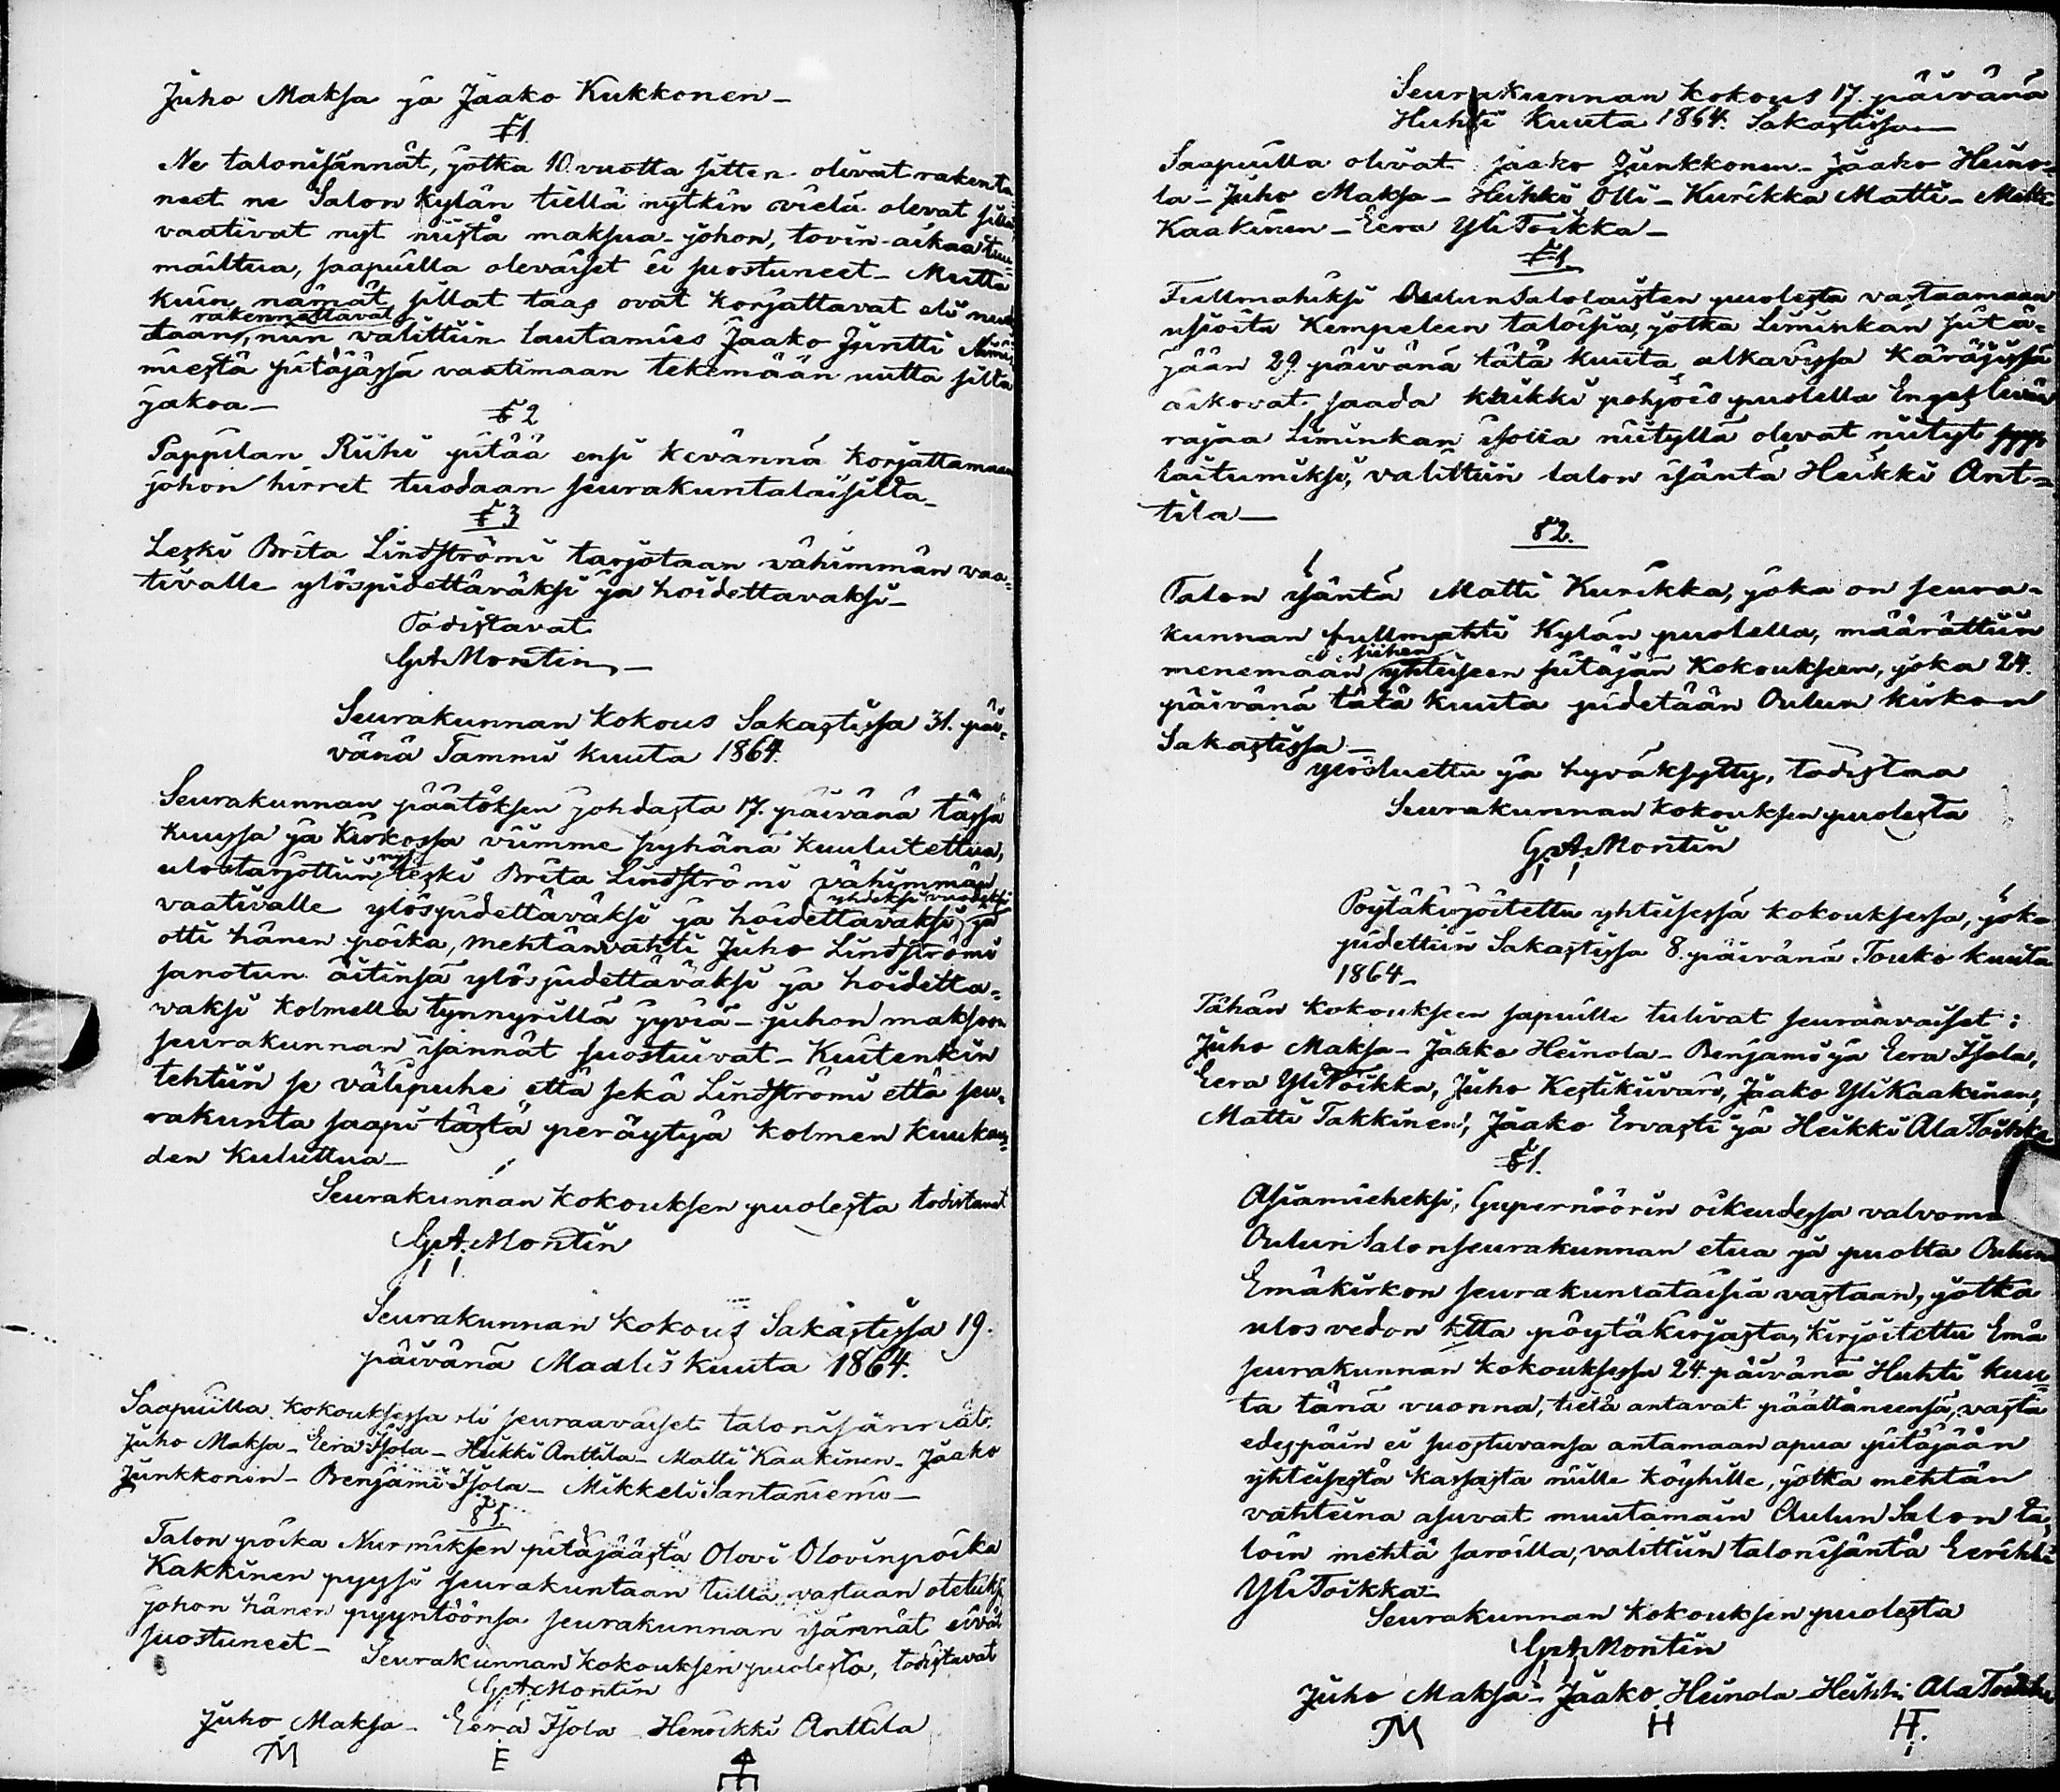 Juho Maksa ja Jaako Kukkonen -
§ 1.
Ne talonisännät, jotka 10. vuotta sitten olivat rakenta
neet ne Salon kylän tiellä nytkin vielä olevat sillat
vaativat nyt niistä maksua - johon, tovin aikaa tuu=
mailtua, saapuilla olevaiset ei suostuneet - Mutta
kuin nämät sillat taas ovat korjattavat eli
rakennettavat
taan, niin valittiin lautamies Jaako Juntti
miestä pitäjässä vaatimaan tekemään uutta silta
jakoa -
§ 2
Pappilan Riihi pitää ensi kevännä korjattamaan
johon hirret tuodaan seurakuntalaisilta -
§ 3
Leski Brita Lindströmi tarjotaan vähimmän vaa=
tivalle ylöspidettäväksi ja hoidettavaksi -
Todistavat
G A Montin -
Seurakunnan kokous Sakastissa 31. päi=
vänä Tammi kuuta 1864.
Seurakunnan päätöksen johdasta 17. päivänä tässä
kuussa ja kirkossa viimme pyhänä kuulutettua,
ulostarjottiin nyt leski Brita Lindströmi vähimmän
yhdeksi vuodeksi
vaativalle ylöspidettäväksi ja hoidettavaksi, ja
otti hänen poika, mehtänvahti Juho Lindströmi
sanotun äitinsä ylöspidettäväksi ja hoidetta=
vaksi kolmella tynnyrillä jyviä - juhon maksoon
seurakunnan isännät suostuivat - Kuitenkin
tehtiin se välipuhe että sekä Lindströmi että seu=
rakunta saapi tästä peräytyä kolmen kuukau=
den kuluttua -
Seurakunnan kokouksen puolesta todistavat
G. A. Montin
Seurakunnan kokous Sakastissa 19.
päivänä Maalis kuuta 1864.
Saapuilla kokouksessa oli seuraavaiset talonisännät:
Juho Maksa - Eera Isola - Heikki Anttila - Matti Kaakinen - Jaako
Junkkonin - Benjami Isola - Mikkeli Santaniemi -
§ 1.
Talon poika Nurmiksen pitäjäästä Olovi Olovinpoika
Kakkinen pyysi seurakuntaan tulla vastaan otetuksi
johon hänen pyyntöönsä seurakunnan isännät eivät
suostuneet -
Seurakunnan kokouksen puolesta, todistavat
G. A. Montin
Juho Maksa - Eera Isola - Henrikki Anttila
M E
Seurakunnan kokous 17. päivänä
Huhti kuuta 1864. Sakastissa -
Saapuilla olivat Jaako Junkkonen - Jaako Heino=
la - Juho Maksa - Heikki Olli - Kurikka Matti - Matti
Kaakinen - Eera YliToikka -
§ 1.
Fullmahiksi OulunSalolaisten puolesta vastaamaan
usioita Kempeleen taloisia, jotka Liminkan pitä=
jään 29. päivänä tätä kuuta alkavissa käräjissä
aikovat saada kaikki pohjois puolella
rajaa Liminkan isolla niityllä olevat niityt
laitumiksi, valittiin talon isäntä Heikki Ant=
tila -
§ 2.
Talon isäntä Matti Kurikka, joka on seura=
kunnan fullmahti Kylän puolella, määrättiin
siihen
menemään yhteiseen pitäjän kokoukseen, joka 24.
päivänä tätä kuuta pidetään Oulun kirkon
Sakastissa -
ylösluettu ja hyväksytty, todistaa
Seurakunnan kokouksen puolesta
G. A. Montin
Pöytäkirjoitettu yhteisessä kokouksessa, joka
pidettiin Sakastissa 8. päivänä Touko kuuta
1864 -
Tähän kokoukseen sapuille tulivat seuraavaiset:
Juho Maksa - Jaako Heinola - Benjami ja Eera Isola,
Eera YliToikka, Juho Kestikiivari, Jaako YliKaakinen,
Matti Takkinen, Jaako Ervasti ja Heikki AlaToikka
§ 1.
Asiamieheksi, Gupernöörin oikeudessa valvoma
OulunSalonseurakunnan etua ja puolta Oulun
Emäkirkon seurakuntalaisia vastaan, jotka
ulosvedon ktta pöytäkirjasta, kirjoitettu Emä
seurakunnan kokouksessa 24. päivänä Huhti kuu=
ta tänä vuonna, tietä antavat päättäneensä, vasta
edespäin ei suostuvansa antamaan apua pitäjään
yhteisestä kassasta niille köyhille, jotka mehtän
vahteina asuvat muutamain Oulun Salon ta=
loin mehtä saroilla, valittiin talonisäntä Eerikki
YliToikka -
Seurakunnan kokouksen puolesta
G. A. Montin
Juho Maksa - Jaako Heinola - Heikki AlaToikka
M H HT.